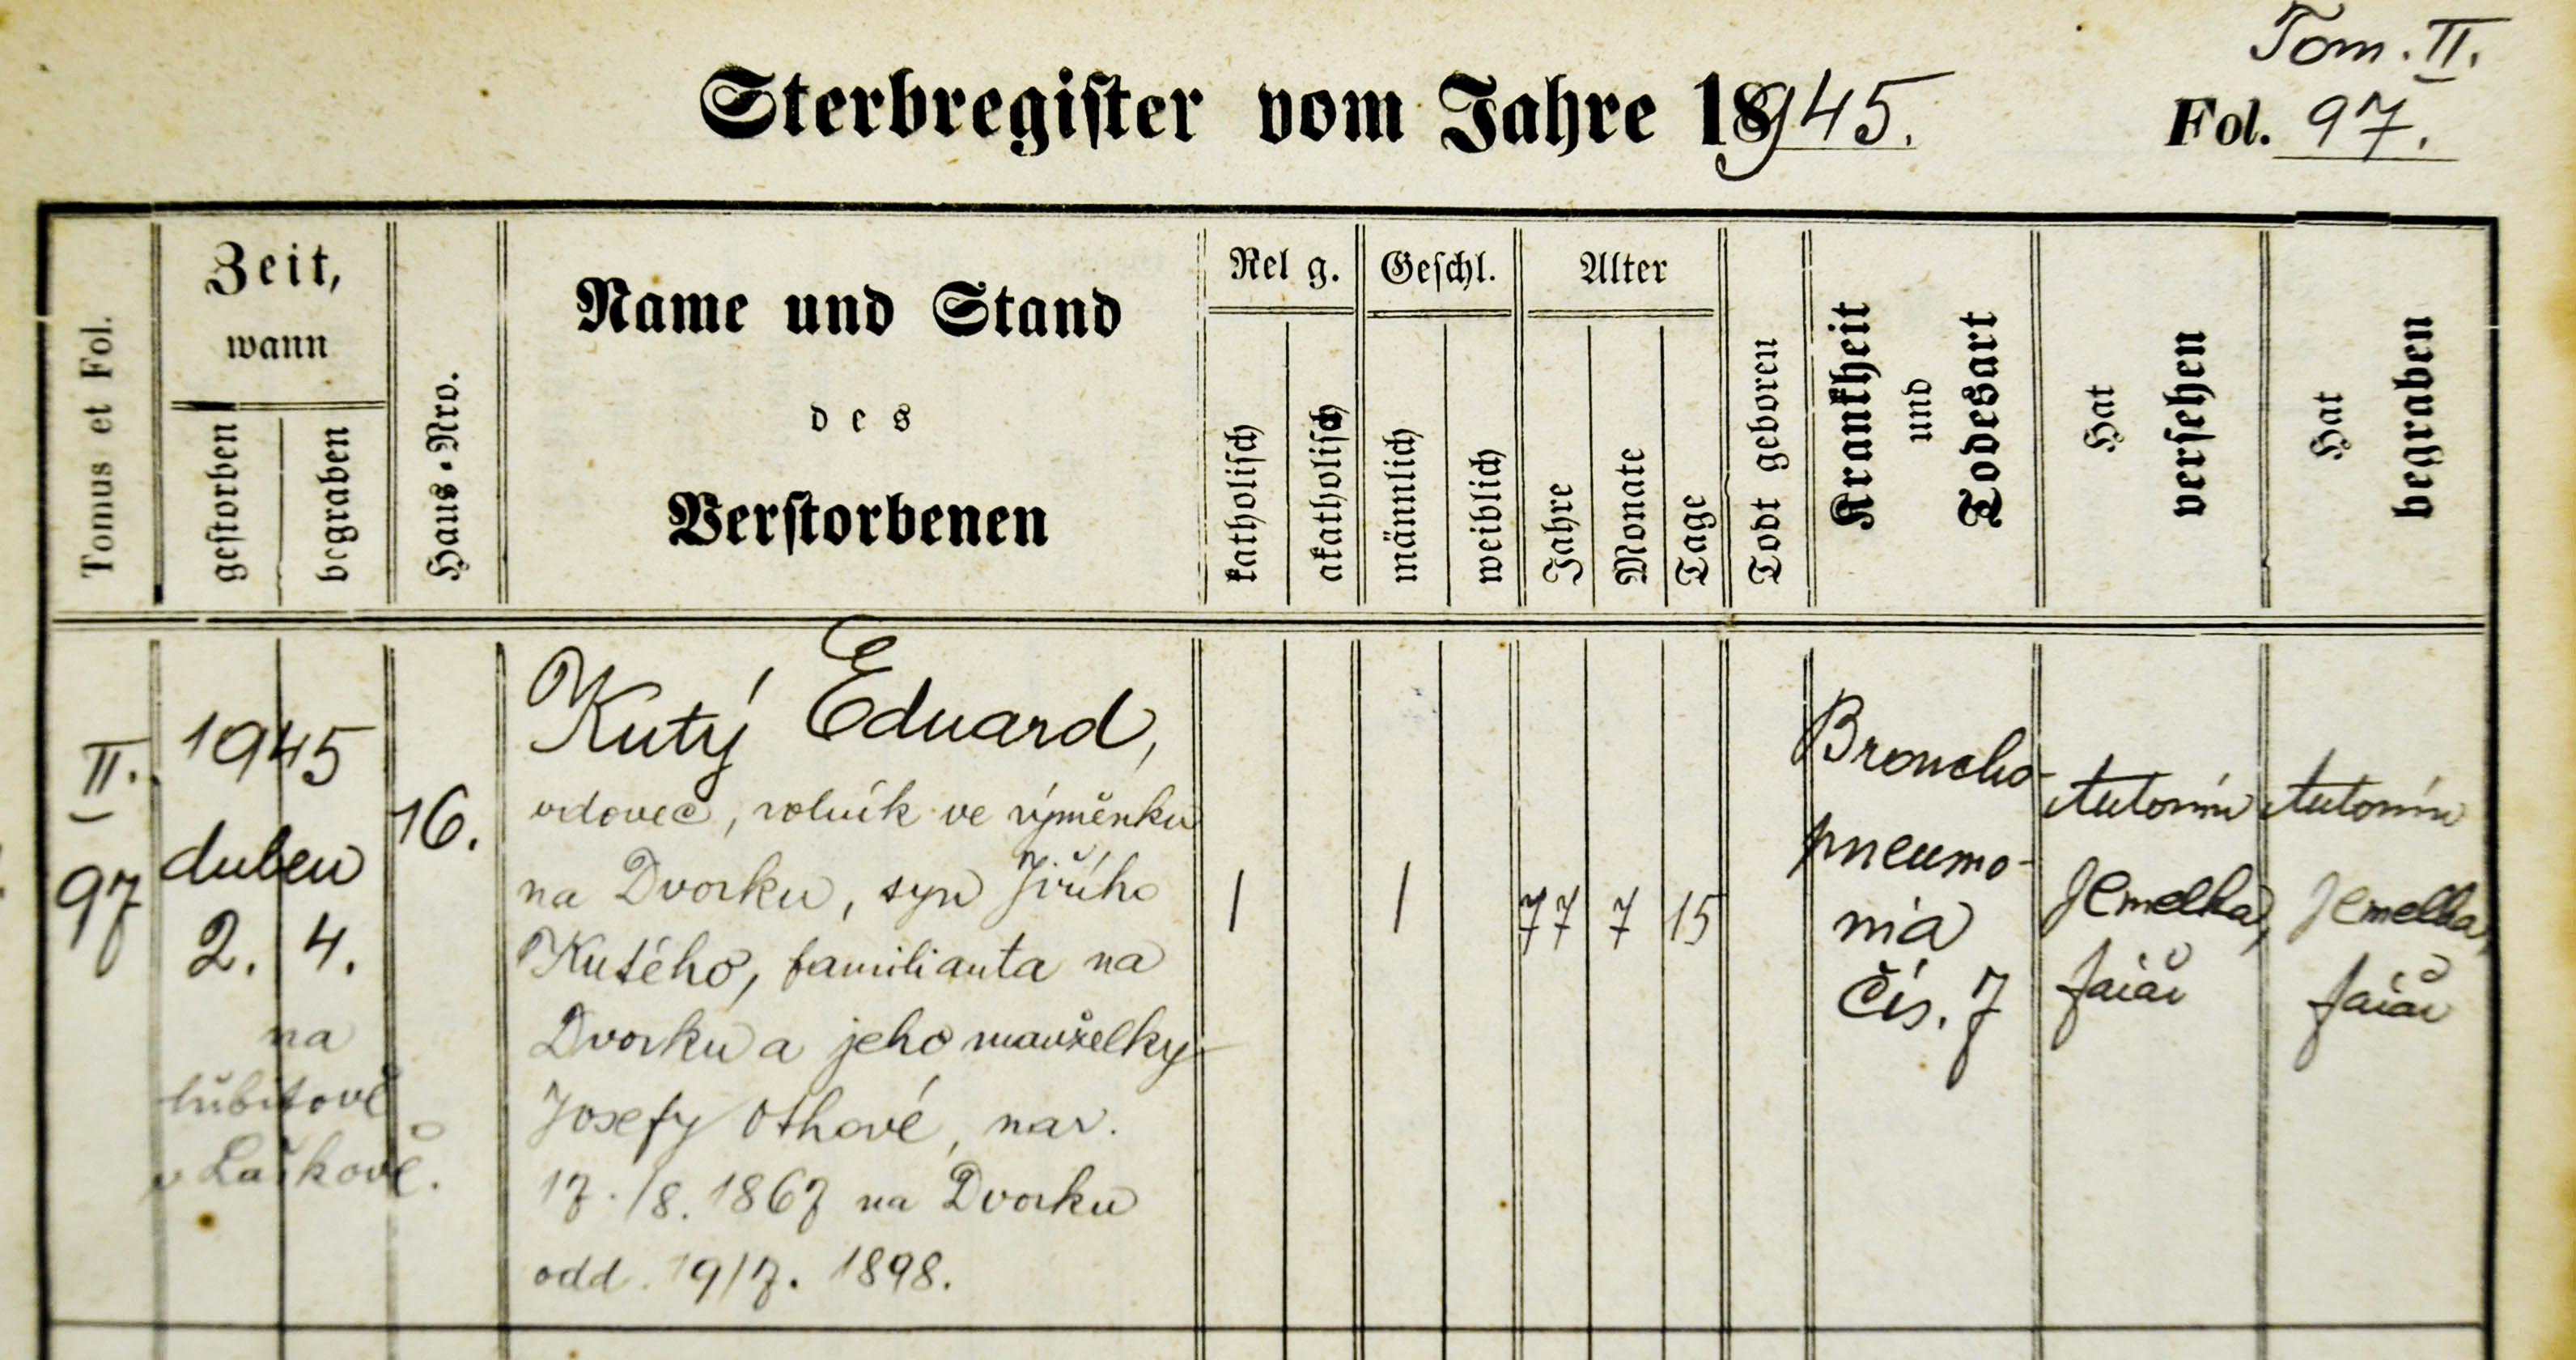 Tom. II.
Sterbregister vom Jahre 18945.
Fol. 97.
Tomus et Fol.
Zeit,
wann
gestorben
begraben
Haus-Nro.
Name und Stand
des
Verstorbenen
Rel g.
katholisch
akatholisch
Geschl.
männlich
weiblich
Alter
Jahre
Monate
Tage
Todt geboren
Krankheit
und
Todesart
Hat
versehen
Hat
begraben
II.
97
1945
duben
2. 4.
na
hřbitově
v Laškově.
16.
Kutý Eduard,
vdovec, rolník ve výměnku
na Dvorku, syn Jiřího
Kutého, familianta na
Dvorku a jeho manželky
Josefy Othové, nar.
17./8. 1867 na Dvorku
odd. 19/7. 1898.
1
1
77 7 15
Broncho-
pneumo-
nia
Čís. 7
Antonín
Jemelka,
farář
Antonín
Jemelka,
farář